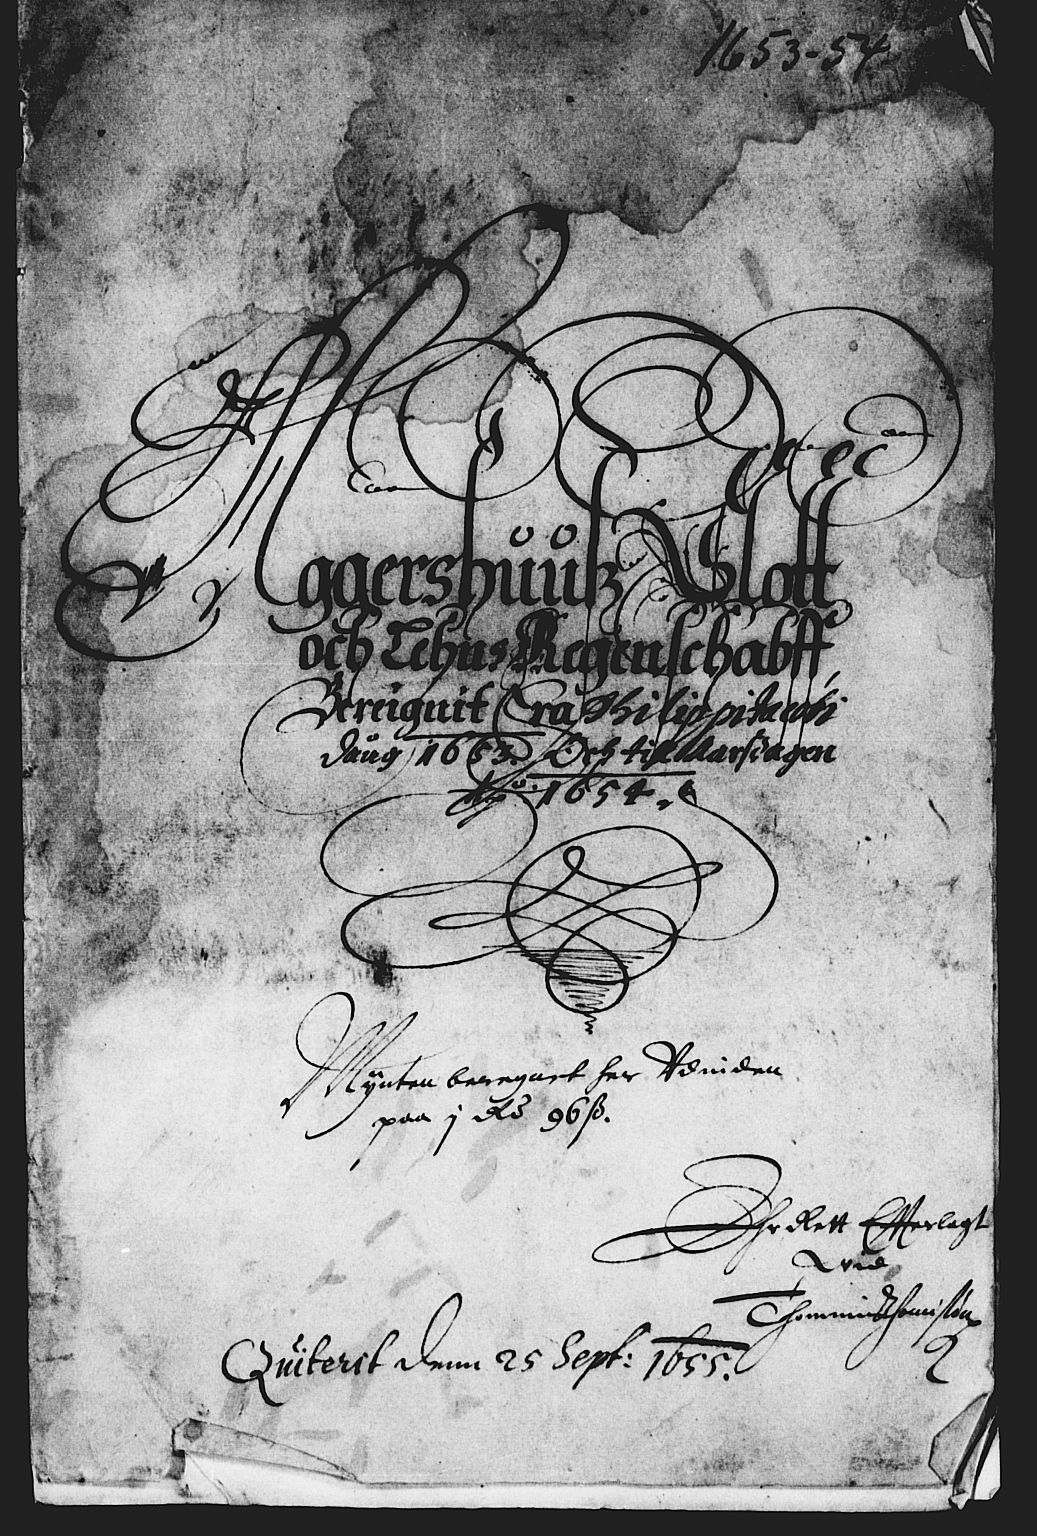 1653-54
Aggershŭŭsz Slott
och Lehns Regenschabff
Bereignit Fra Philippi Jacobi
daug 1653. Och till Aarsdagen
Aō 1654.
Mÿnten beregnet her Vdinden
paa j Rd 96 ß.
Ehr Rett Efterlagt
Quiterit denn 25 Sept: 1655.